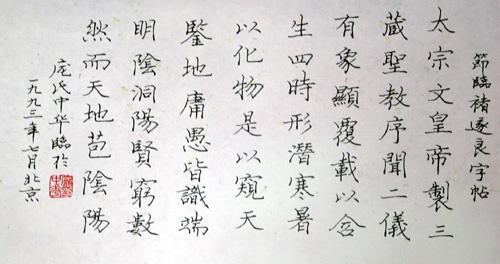 節臨褚遂良字帖
太宗文皇帝製三
藏聖教序聞二儀
有象顯覆載以含
生四時形潛寒暑
以化物是以窺天
鋻地庸愚皆識端
明陰洞陽賢窮數
然而天地苞陰陽
庞氏中华臨於
一九九三年七月北京